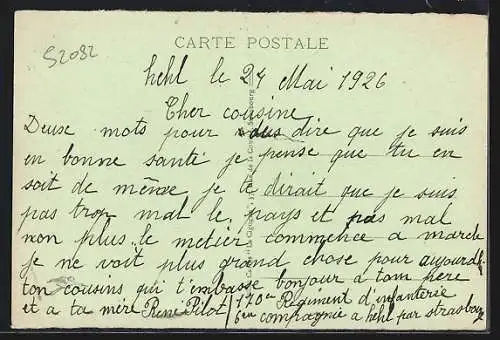 52082
CARTE POSTALE
hehl le 24 Mai 1926
Cher cousine
Deuse mots pour vous dire que je suis
en bonne santé je pense que tu en
soit de même je te dirait que je suis
pas trop mal le pays et pas mal
non plus le metier commence a march
je ne voit plus grand chose pour aujourd'
ton cousins qui t'embasse bonjour a tom père
et a ta mère René Pilot
170em Régiment d'infanterie
6em compagnie a hehl par strasbourg